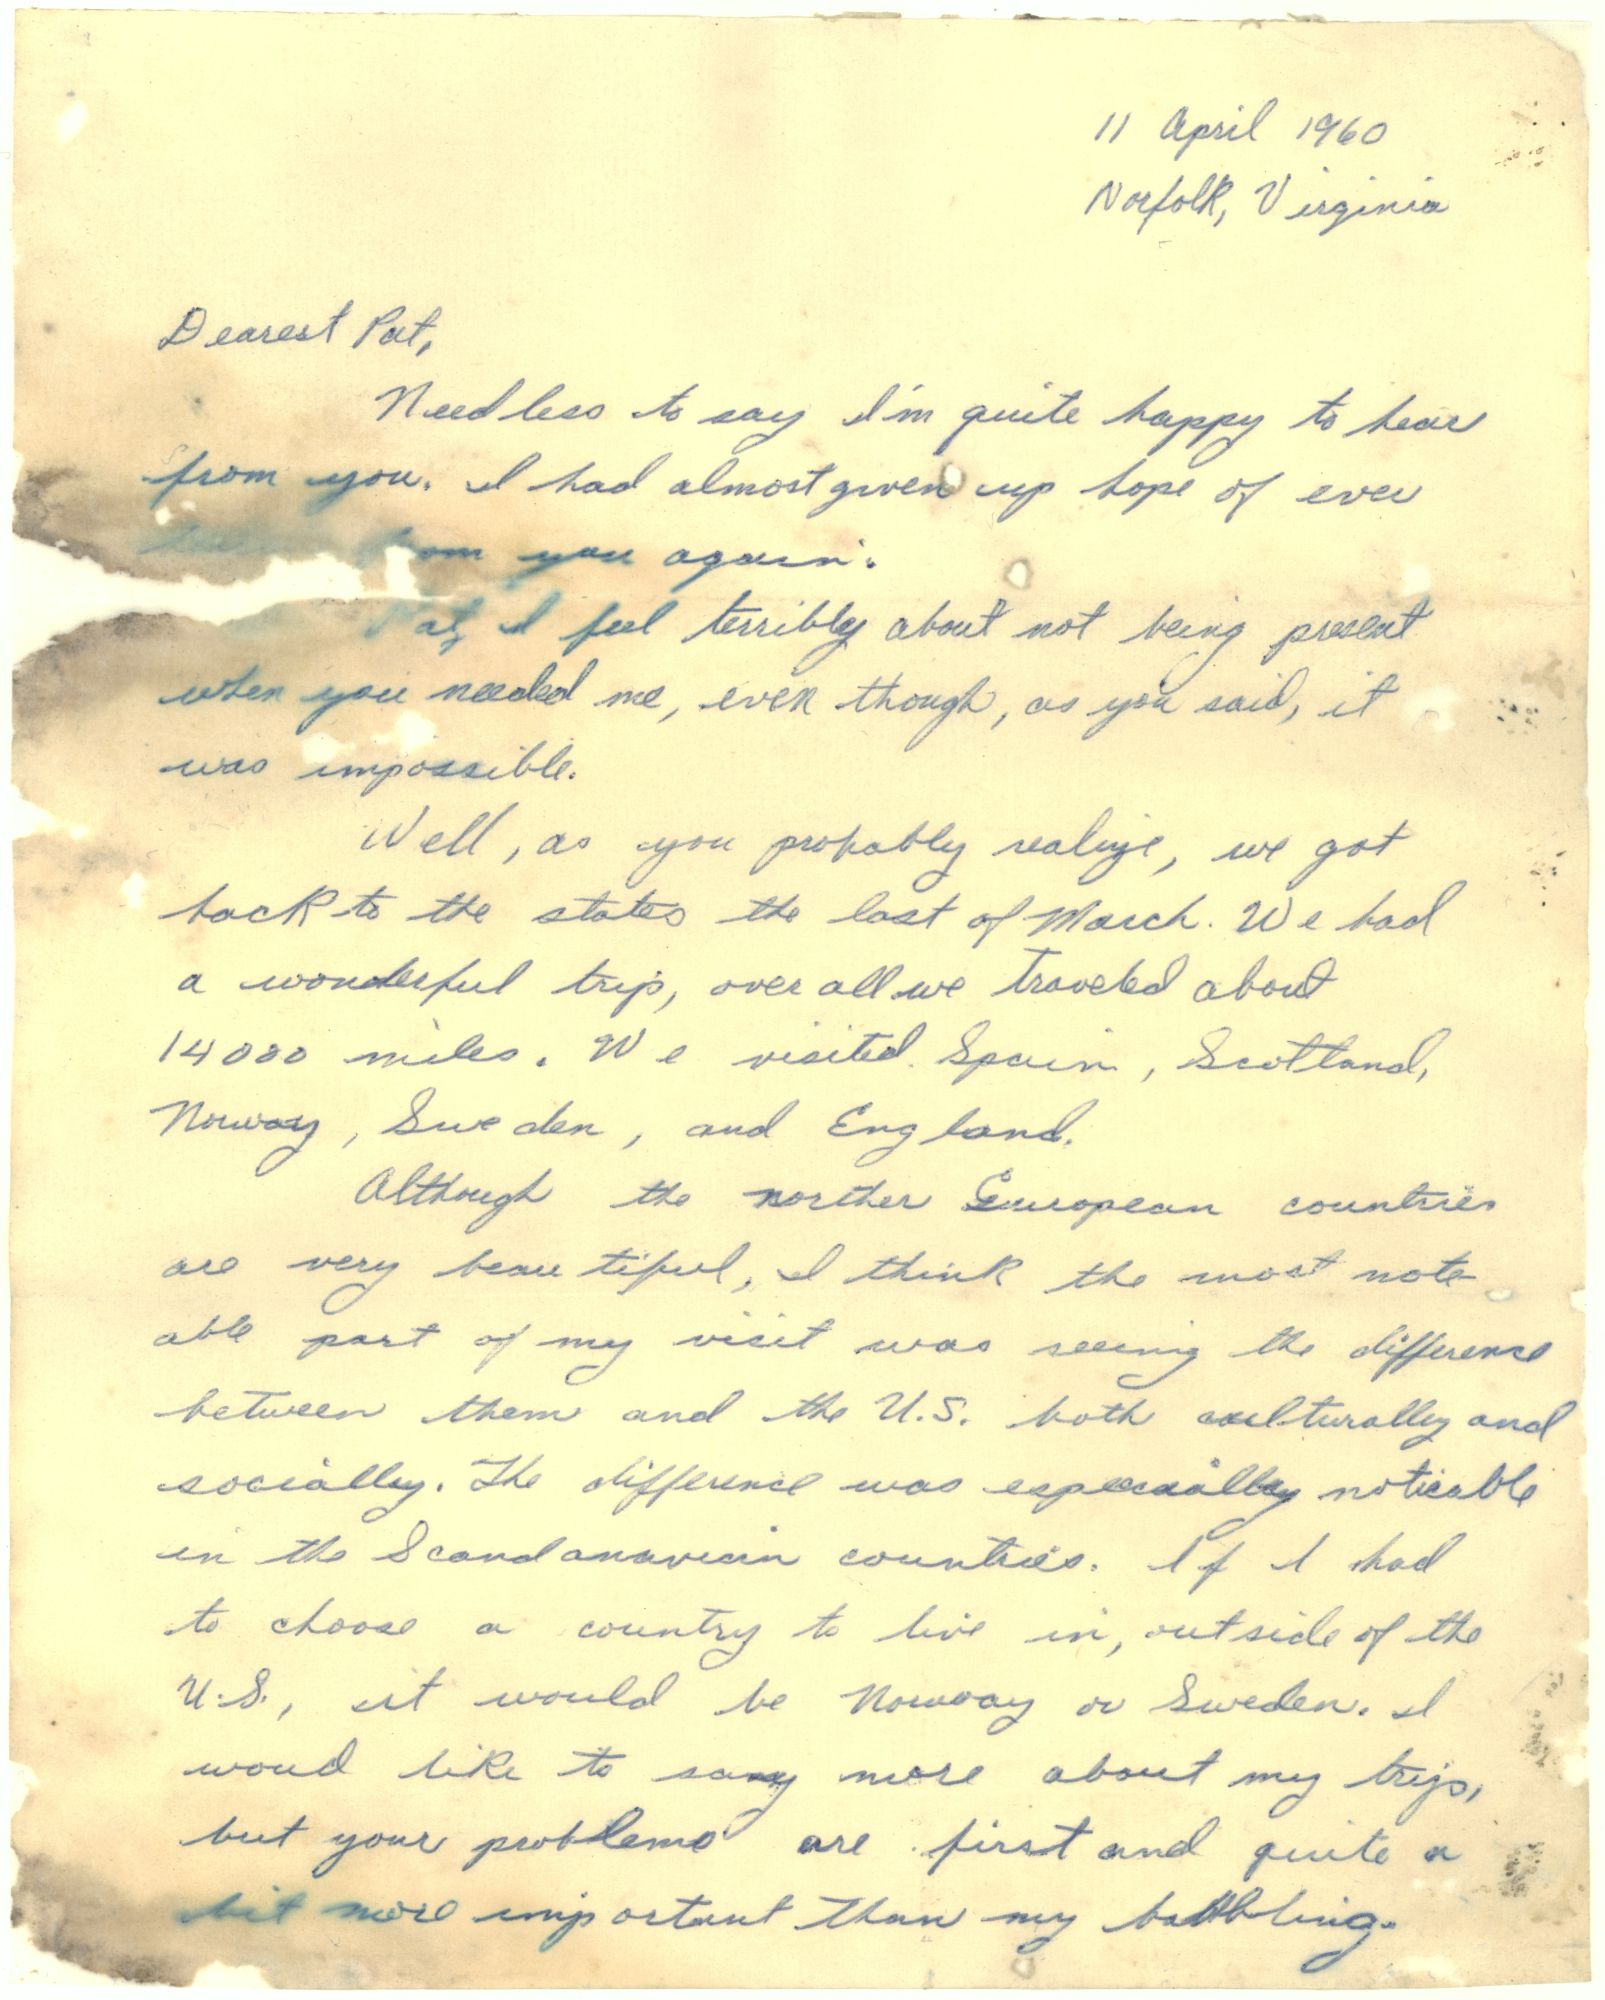 11 April 1960
Norfolk, Virginia
Dearest Pat,
Needless to say I'm quite happy to hear
from you. I had almost given up hope of ever
from you again.
Pat, I feel terribly about not being present
when you needed me, even though, as you said, it
was impossible.
Well, as you probably realize, we got
back to the states the last of March. We had
a wonderful trip, over all we traveled about
14000 miles. We visited Spain, Scotland,
Norway, Sweden, and England.
Although the norther European countries
are very beautiful, I think the most note-
able part of my visit was seeing the difference
between them and the U.S. both culturally and
socially. The difference was especially noticable
in the Scandanavian countries. If I had
to choose a country to live in, outside of the
U.S., it would be Norway or Sweden. I
woud like to say more about my trip,
but your problems are first and quite a
bit more important than my babbling.